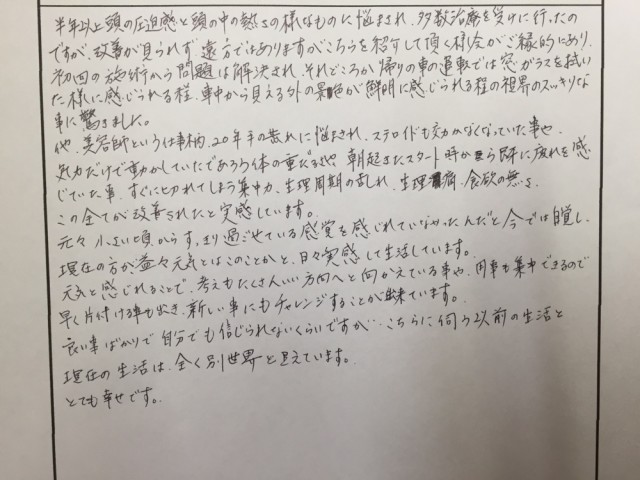 半年以上頭の圧迫感と頭の中の熱さの様なものに悩まされ、多数治療を受けに行ったの
ですが、改善が見られず、遠方ではありますがこちらを紹介して頂く機会がご縁的にあり、
初回の施術から問題は解決され、それどころか帰りの車の運転では窓ガラスを拭い
た様に感じられる程、車中から見える外の景色が鮮明に感じられる程の視界のスッキリな
事に驚きました。
他、美容師という仕事柄、20年手の荒れに悩まされ、ステロイドも効かなくなっていた事や
気力だけで動かしていたであろう体の重だるさや 朝起きたスタート時から既に疲れを感
じていた事、すぐに切れてしまう集中力、生理周期の乱れ、生理痛、食欲の無さ、
この全てが改善されたと実感しています。
元々 小さい頃からすっきり過ごせている感覚を感じれていなかったんだと今では自覚し、
現在の方が益々元気とはこのことかと、日々実感して生活しています。
元気と感じれることで、考えもたくさんいい方向へと向かえている事や、用事も集中できるので
早く片付ける事も出来、新しい事にもチャレンジすることが出来ています。
良い事ばかりで自分でも信じられないくらいですが… こちらに伺う以前の生活と
現在の生活は、全く別世界と思えています。
とても幸せです。